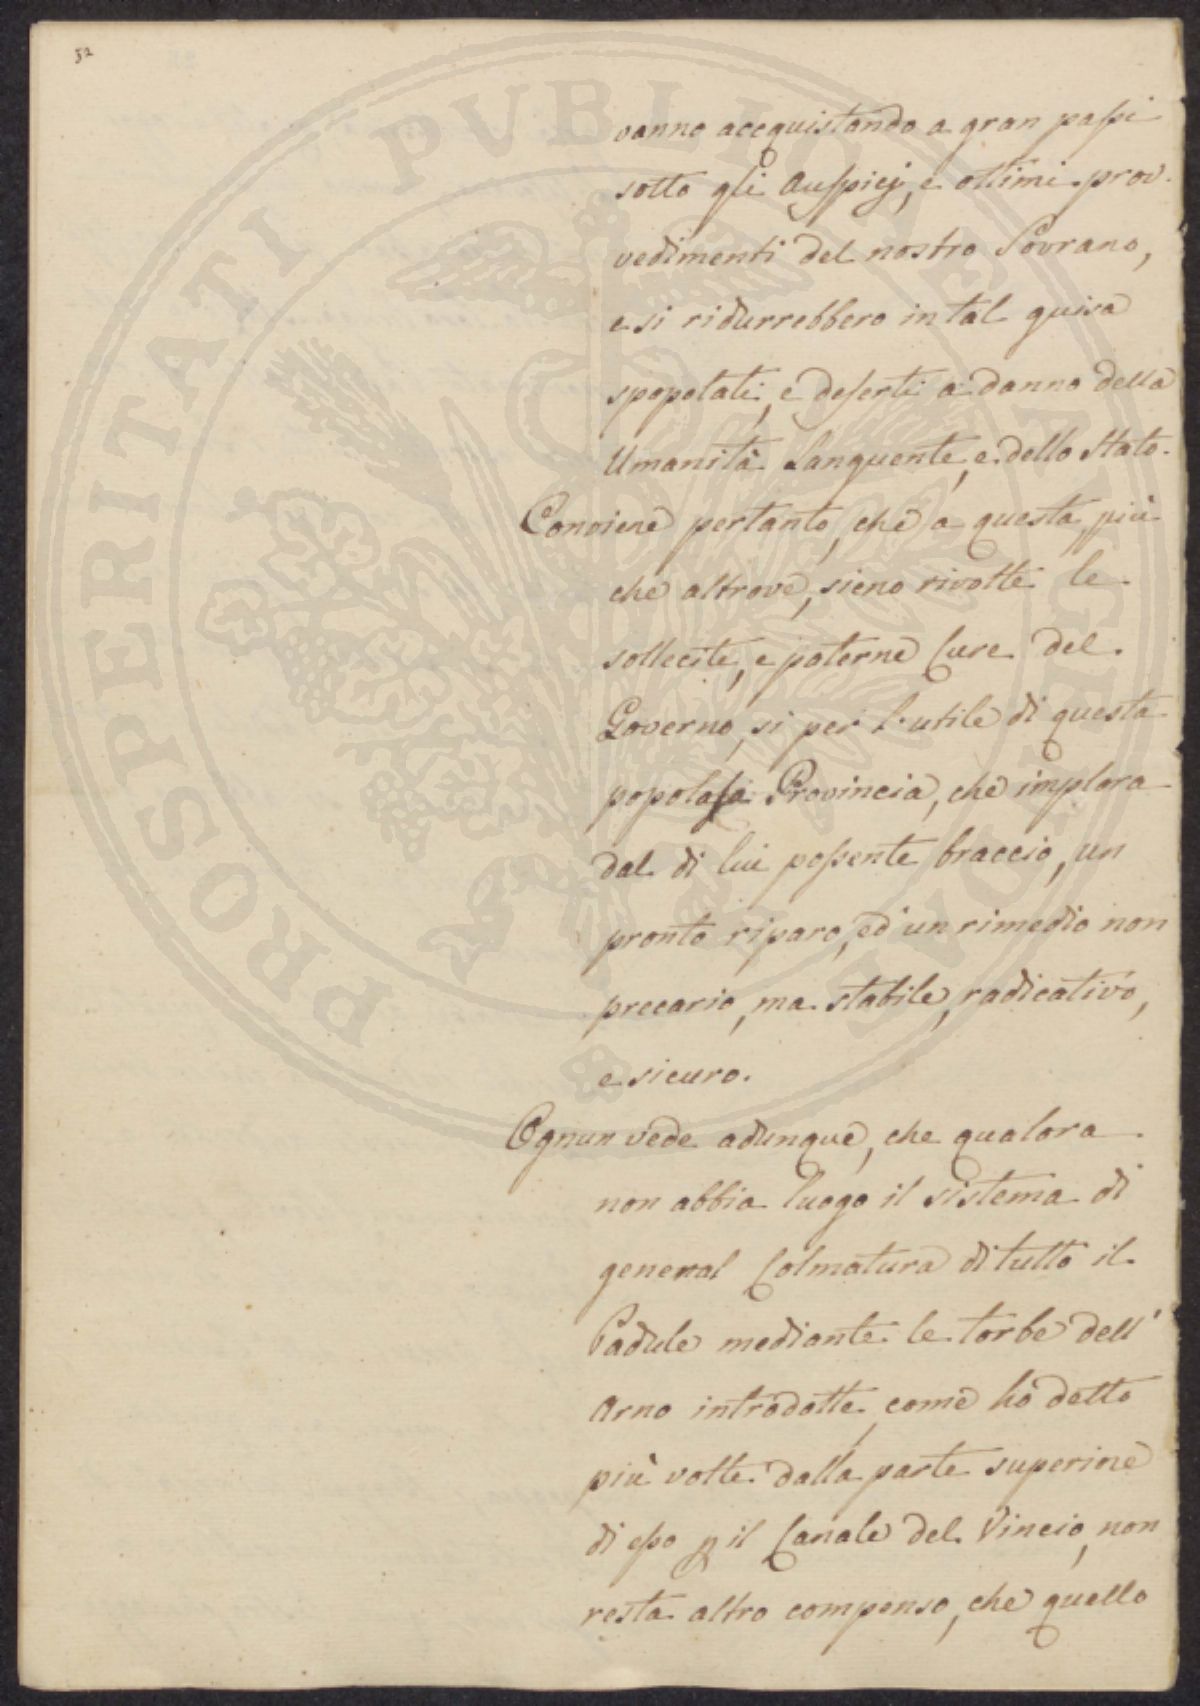 52
vanno acequistando a gran passi
sotto gli Auspicj, e ottimi prov-
vedimenti del nostro Sovrano,
e si ridurrebbero in tal guisa
spopolati, e deserti a danno della
Umanità Languente, e dello Stato.
Conviene pertanto, che a questa, più
che altrove, sieno rivolte le
sollecite, e paterne Cure del
Governo, si per l'utile di questa
popolosa Provincia, che implora
dal di lui possente braccio, un
pronto riparo, ed un rimedio non
precario, ma stabile, radicativo,
e sicuro.
Ognun vede adunque, che qualora
non abbia luogo il sistema di
general Colmatura di tutto il
Padule mediante le torbe dell'
Arno introdotte, come hò detto
più volte dalla parte superiore
di esso p il Canale del Vincio, non
resta altro compenso, che quello
PROSPERITATI PVBLICAE AVGENDAE